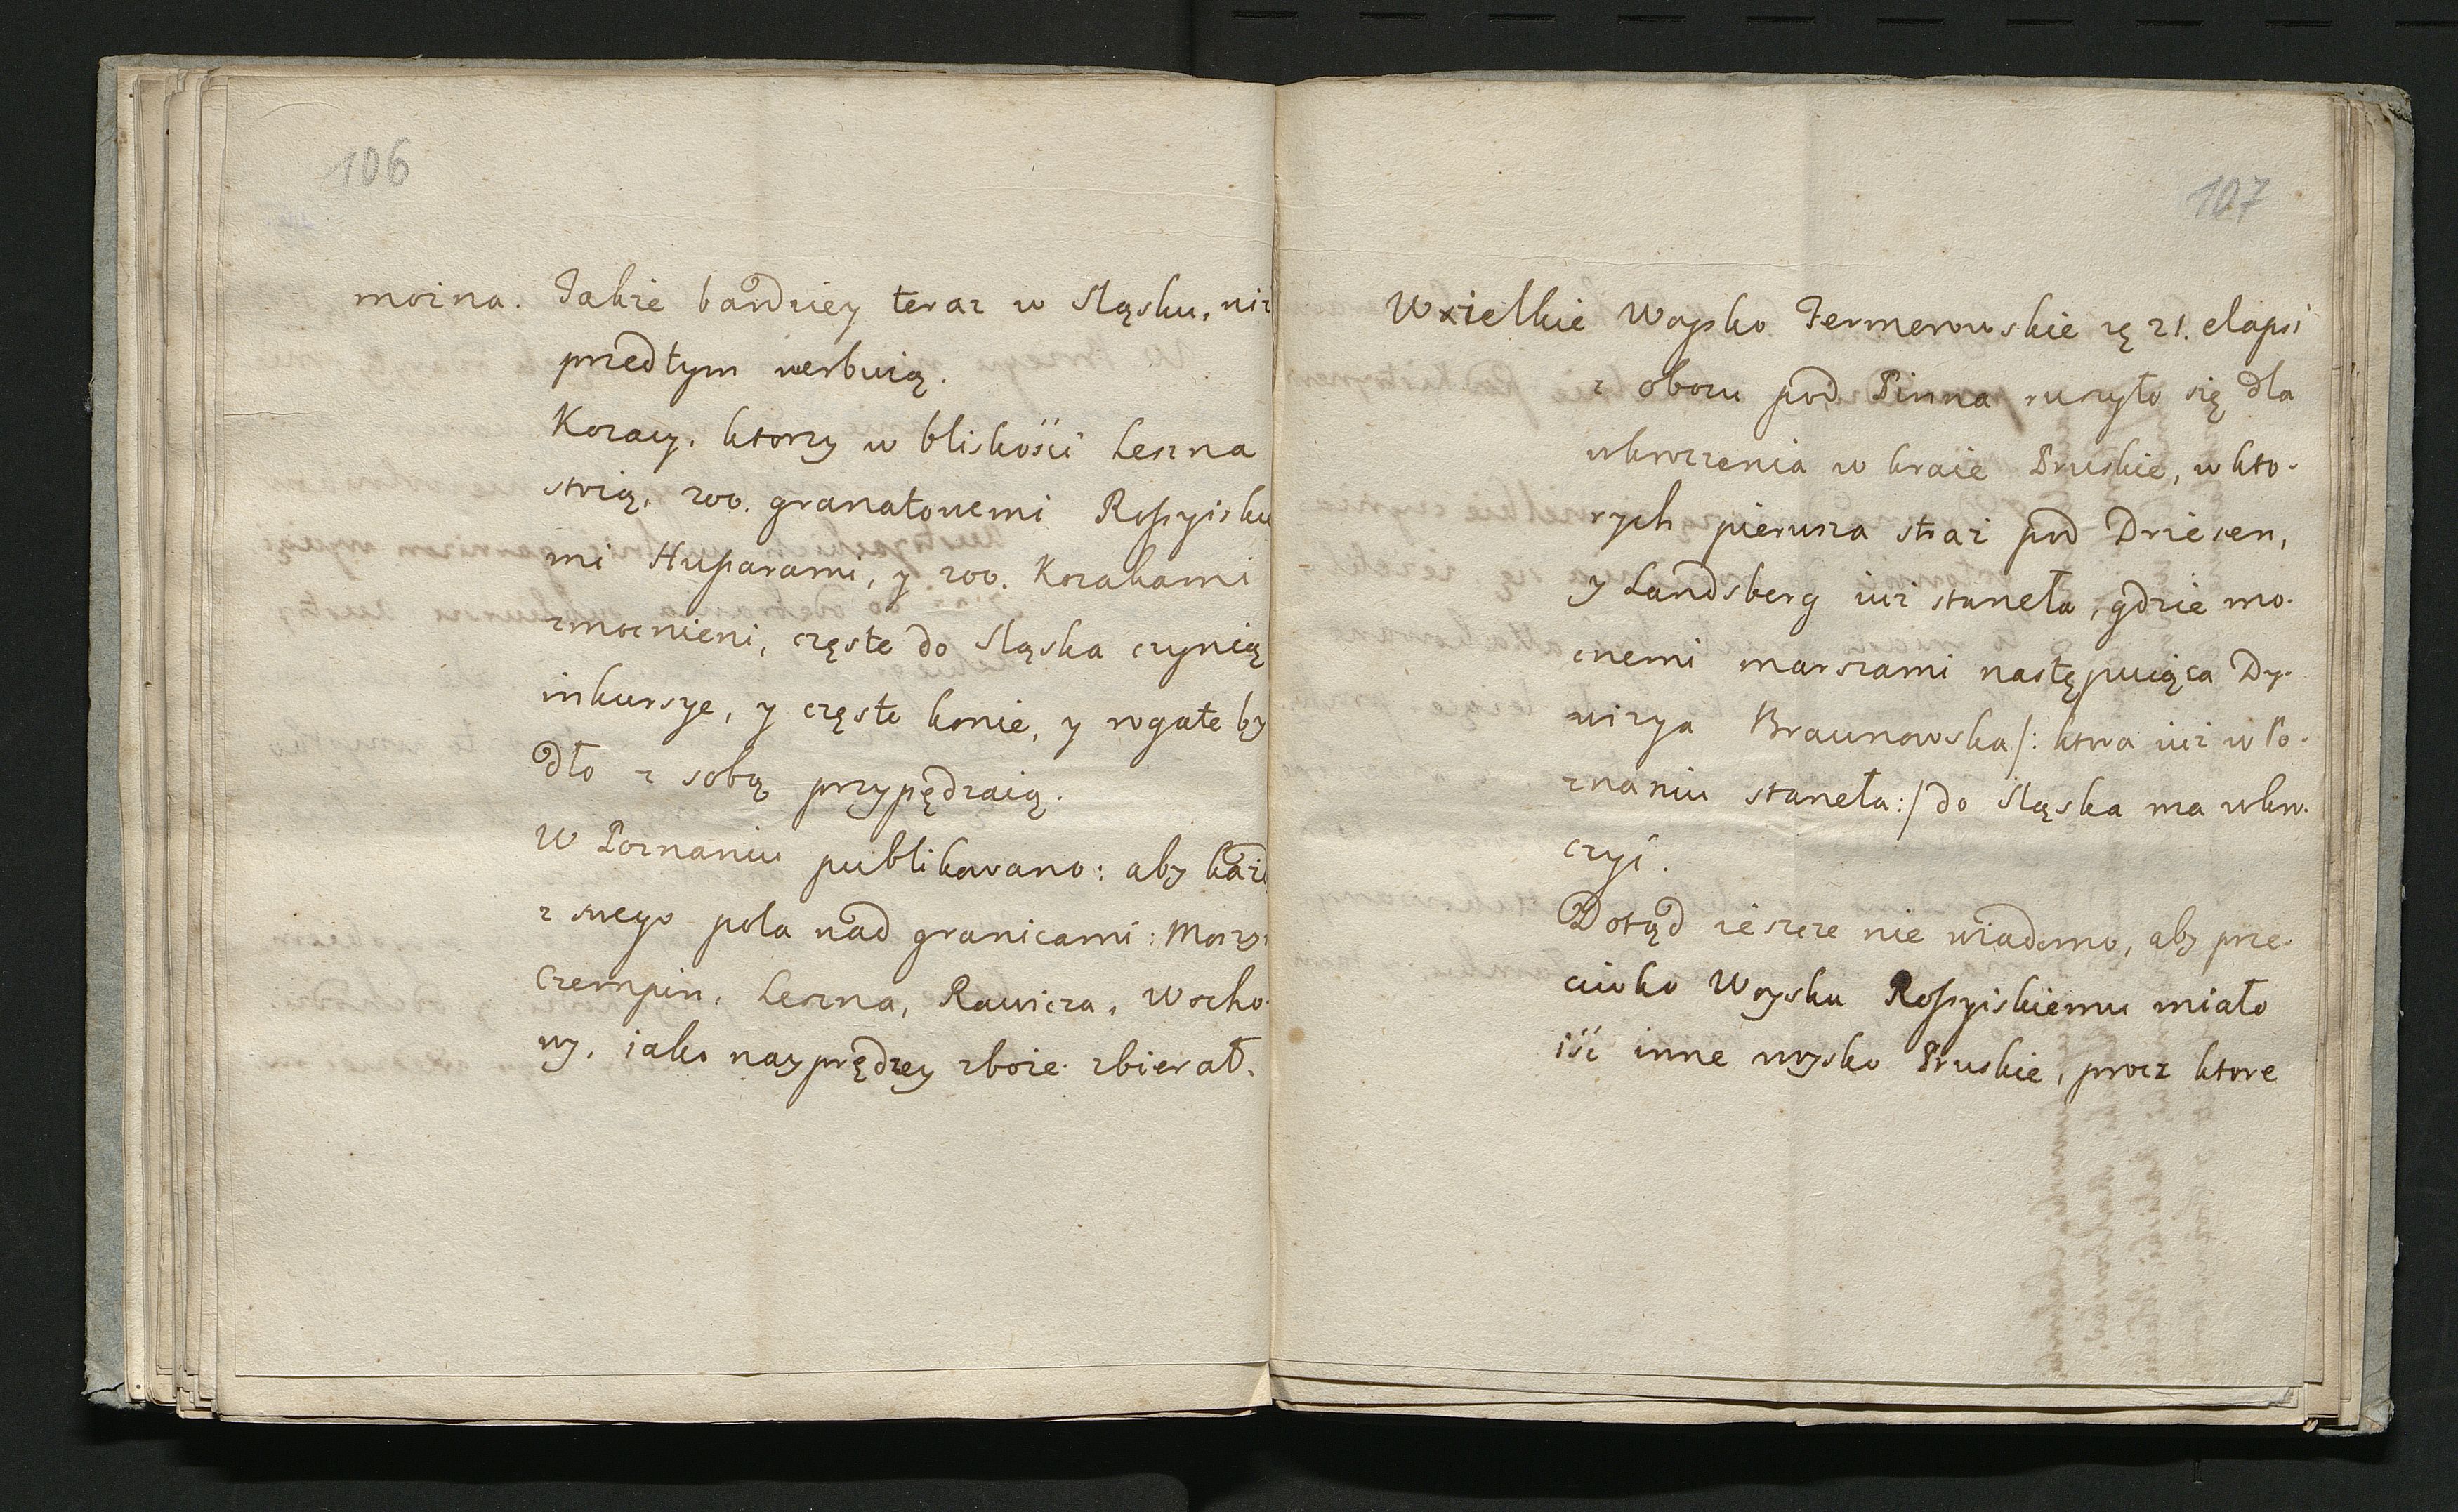 106
można. Takze bardziey teraz w Sląsku, niz
przedtym werbuią.
Kozacy, ktorzy w bliskości Leszna
stoią, 200. granatowemi Rossyisku
mi Hussarami, y 200. Kozakami
zmocnieni, częste do Sląska czynią
inkursye, y często konie, y rogate by
dło z sobą przypędzaią.
W Poznaniu publikowano: aby każd
z swego pola nad granicami:
Czempin, Leszna, Rawicza, Wscho-
wy, iako nayprędzey zboże zbierał.
107
Wszielkie Woysko Fermerowskie zę 21. elapsi
z obozu pod Pinna ruszyło się dla
wkroczenia w kraie Pruskie, w kto-
rych pierwsza straż pod Driesen,
y Landsberg iuż staneła, gdzie mo-
cnemi marszami następuiąca Dy-
wizya Braunowska /: ktora iuż w Po-
znaniu staneła :/ do Sląska ma wkro-
czyć.
Dotąd ieszcze nie wiadomo, aby prze-
ciwko Woysku Rossyiskiemu miało
iść inne woysko Pruskie, procz ktore